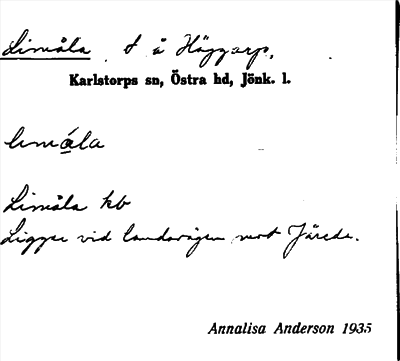 Limåla t å Häggarp,
Karlstorps sn, Östra hd, Jönk. l.
limåla
Limåla kb
Ligger vid landsvägen mot Järeda.
Annalisa Anderson 1935